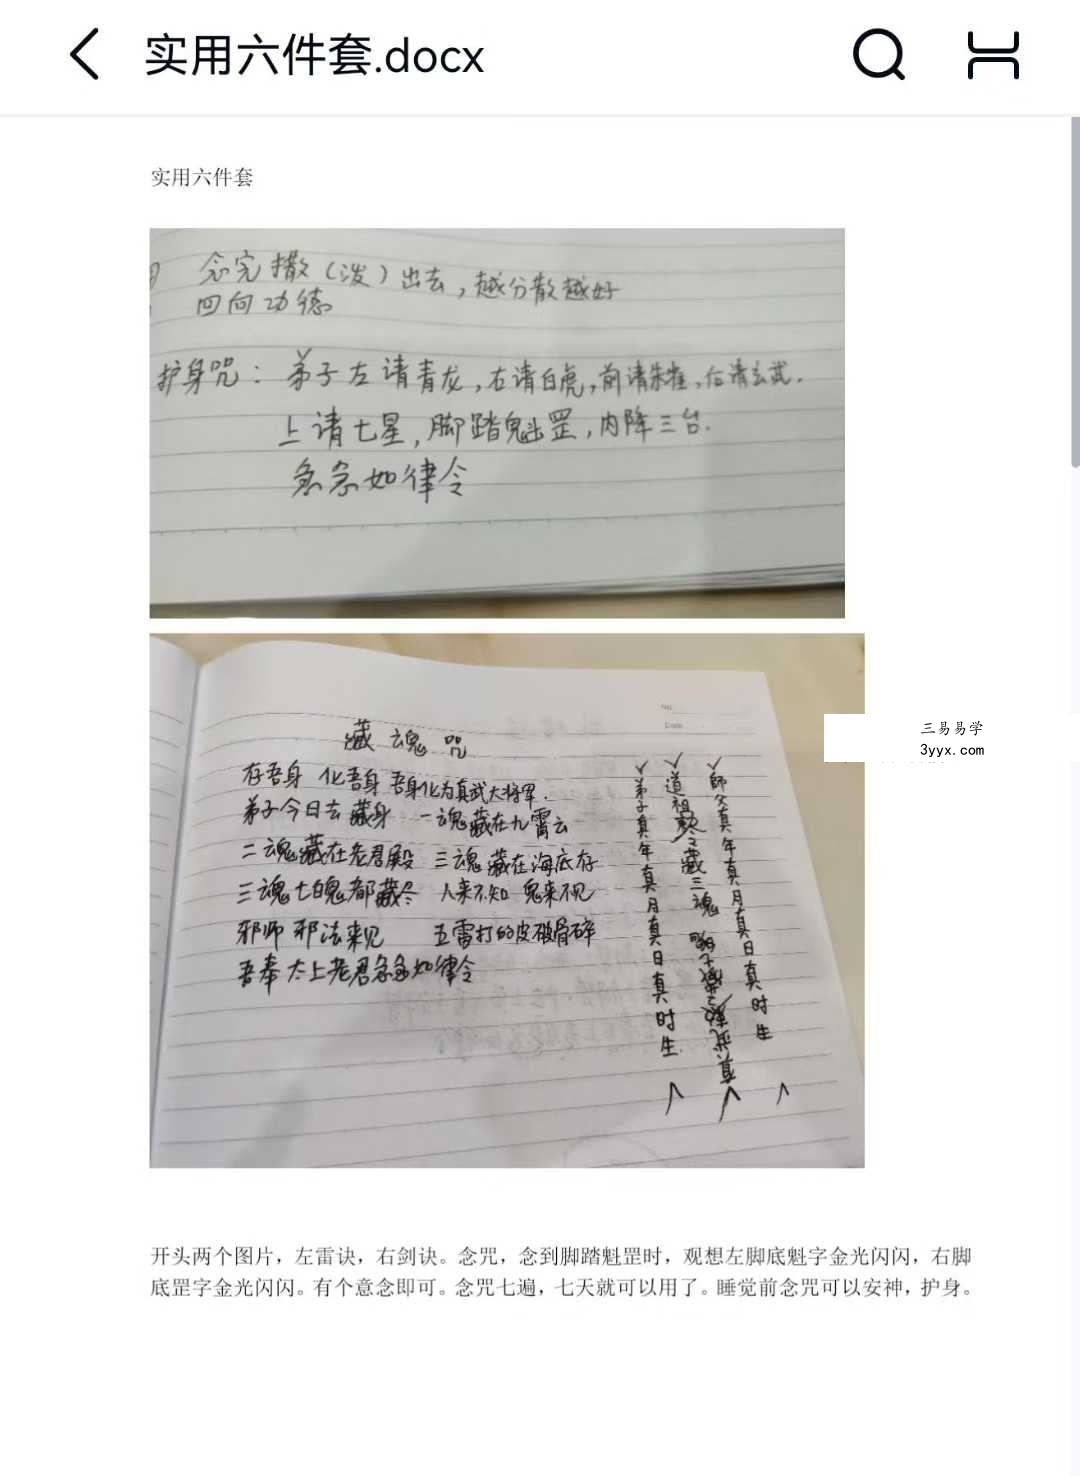 实用六件套.docx
实用六件套
念完撒（泼）出去，越分散越好
回向功德
护身咒：弟子左请青龙，右请白虎，前请朱雀，后请玄武．
上请七星，脚踏魁罡，内降三台．
急急如律令
藏魂咒
存吾身 化吾身 吾身化为真武大将军．
弟子今日去藏身 一魂藏在九霄云
二魂藏在老君殿 三魂藏在海底存
三魂七魄都藏尽 人来不知 鬼来不见
邪师邪法来见 五雷打的皮破骨碎
吾奉太上老君急急如律令
師父真年真月真日真时生
道祖 藏三魂
弟子真年真月真日真时生
三易易学
3yyx.com
开头两个图片，左雷诀，右剑诀。念咒，念到脚踏魁罡时，观想左脚底魁字金光闪闪，右脚
底罡字金光闪闪。有个意念即可。念咒七遍，七天就可以用了。睡觉前念咒可以安神，护身。